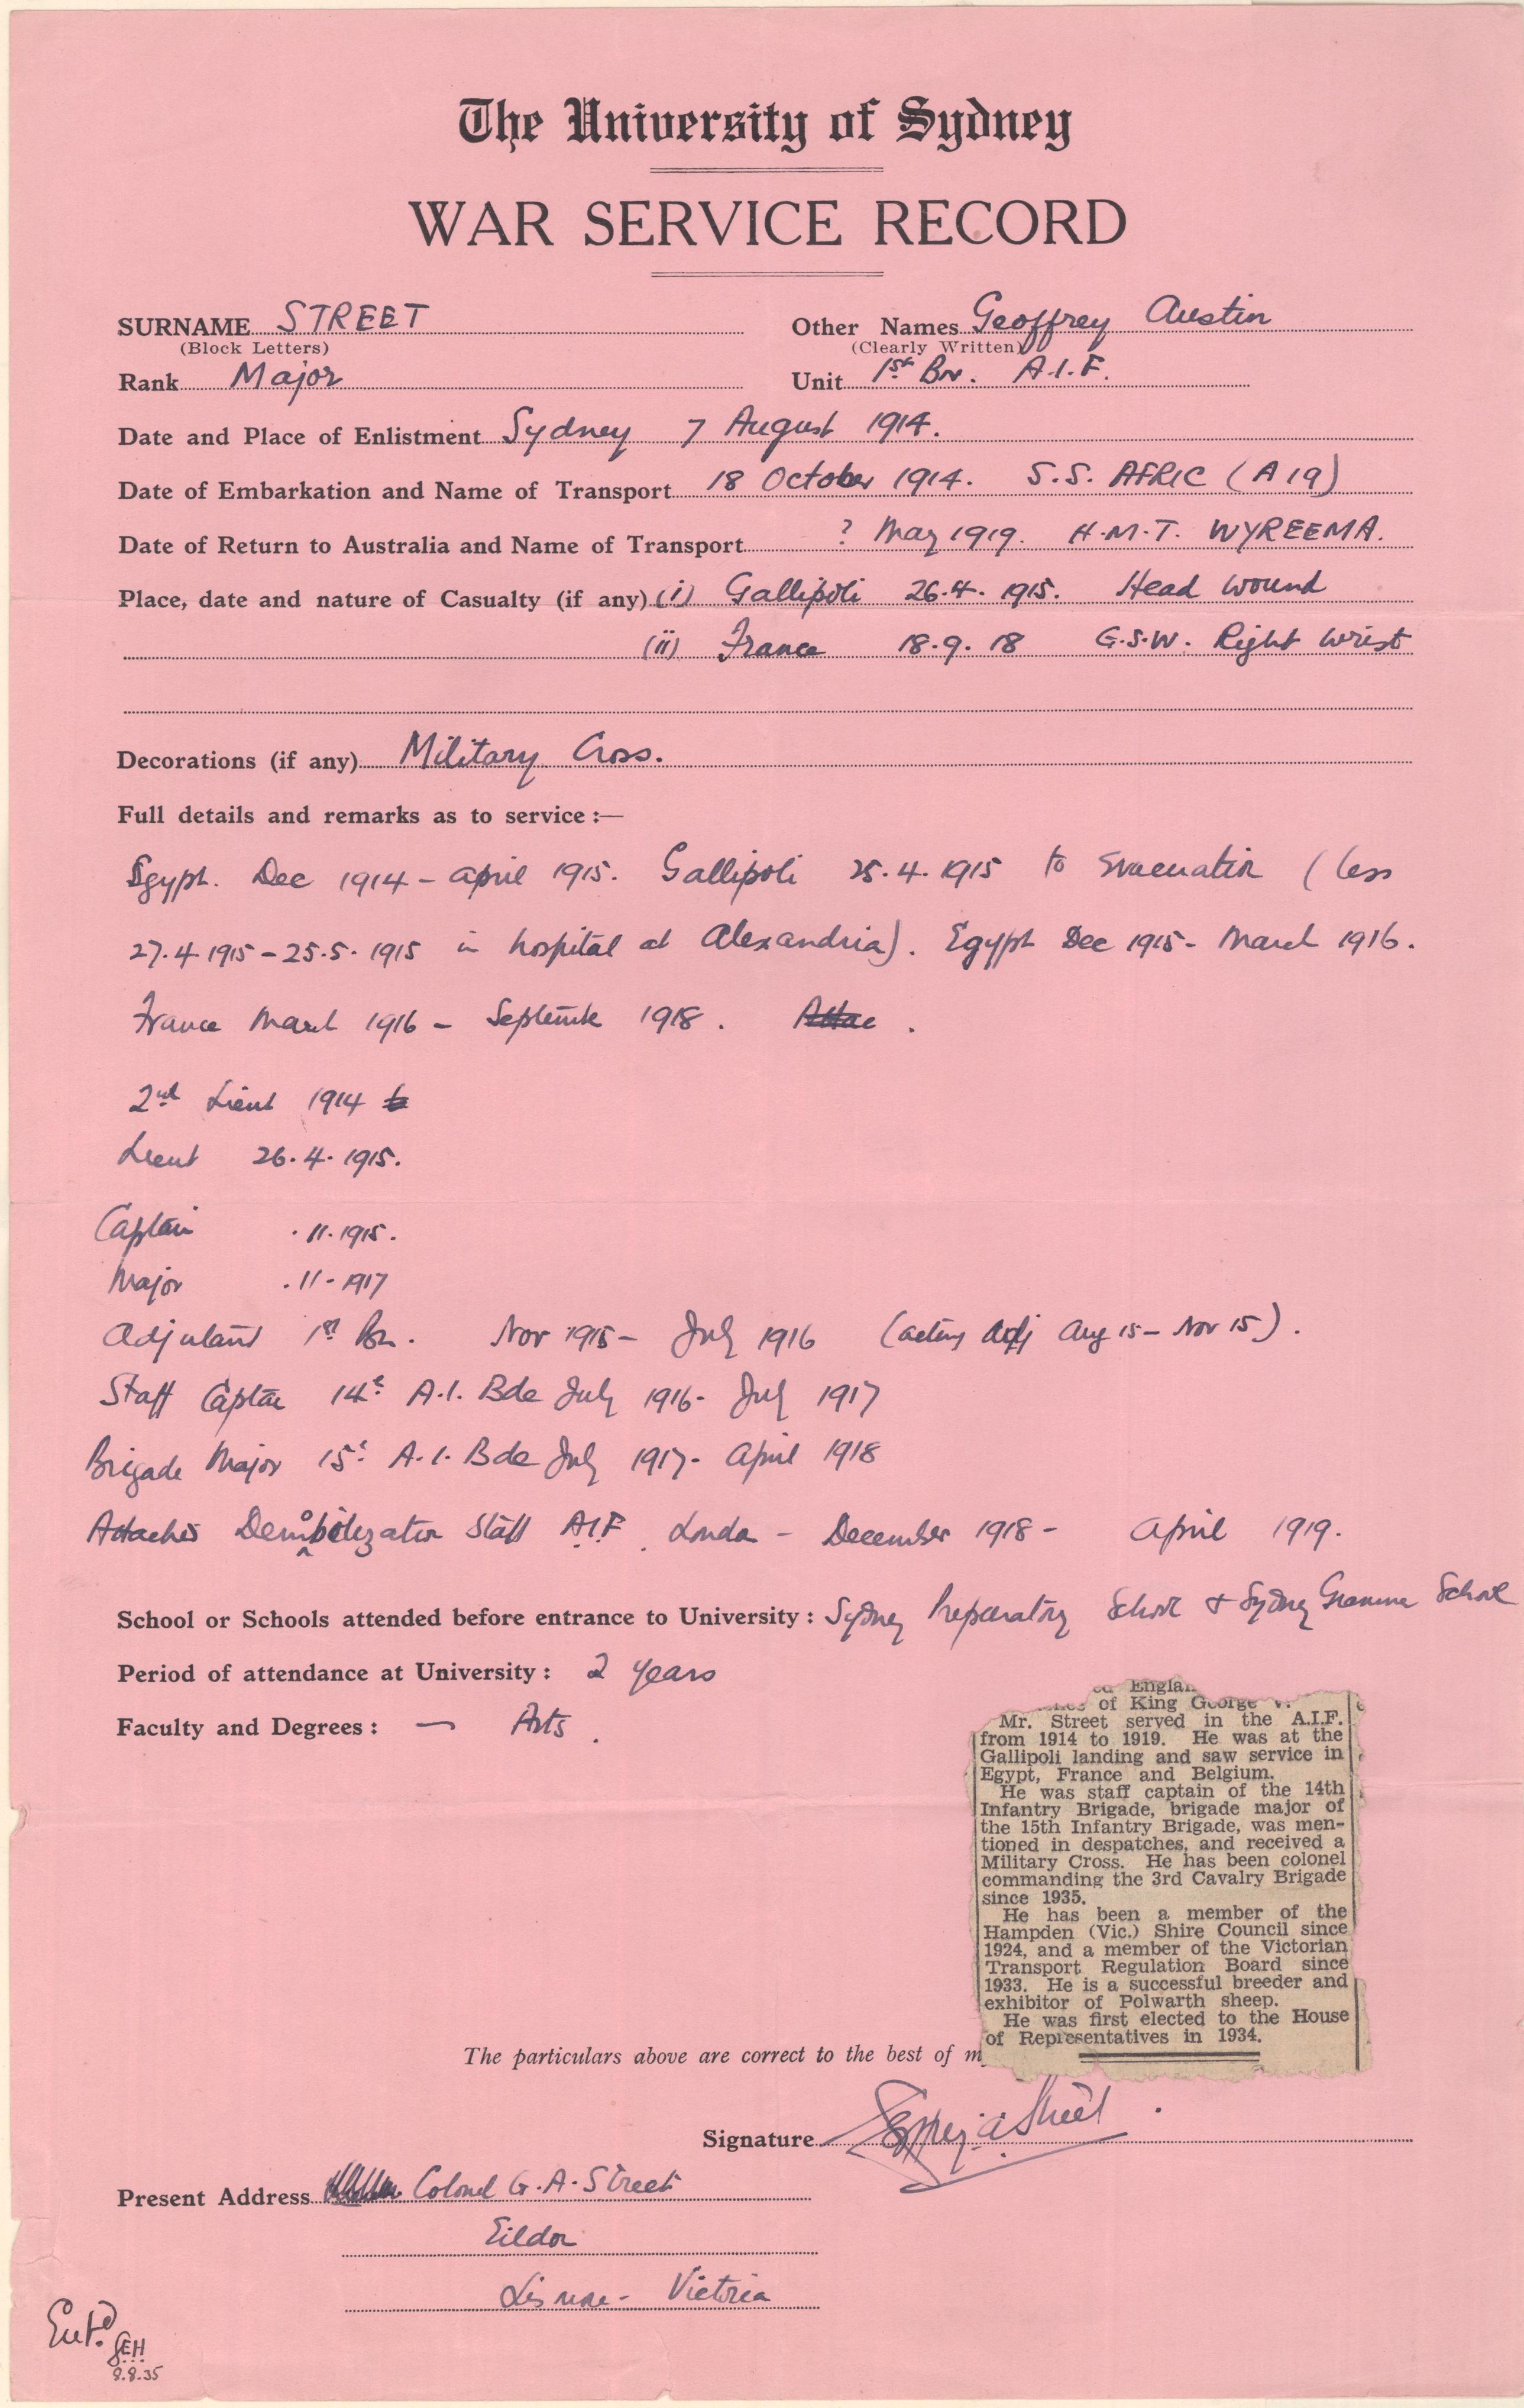 The University of Sydney
WAR SERVICE RECORD
SURNAME STREET Other Names Geoffrey Austin
(Block Letters) (Clearly Written)
Rank Major Unit 1st Bn. A.I.F.
Date and Place of Enlistment Sydney 7 August 1914.
Date of Embarkation and Name of Transport 18 October 1914. S.S. AFRIC (A19)
Date of Return to Australia and Name of Transport ? May 1919. H.M.T. WYREEMA.
Place, date and nature of Casualty (if any) (i) Gallipoli 26.4.1915. Head wound
(ii) France 18.9.18 G.S.W. Right Wrist
Decorations (if any) Military Cross.
Full details and remarks as to service :—
Egypt. Dec 1914 - April 1915. Gallipoli 25.4.1915 to Evacuation (less
27.4.1915 - 25.5.1915 in hospital at Alexandria). Egypt Dec 1915 - March 1916.
France March 1916 - September 1918. Attac .
2nd Lieut 1914 to
Lieut 26.4.1915.
Captain .11.1915.
Major .11-1917
Adjutant 1st Bn. Nov 1915 - July 1916 (acting Adj Aug 15 - Nov 15).
Staff Captain 14th A.I. Bde July 1916 - July 1917
Brigade Major 15th A.I. Bde July 1917 - April 1918
Attached Demobilization Staff A.I.F. London - December 1918 - April 1919.
School or Schools attended before entrance to University : Sydney Preparatory School & Sydney Grammar School
Period of attendance at University : 2 years
Faculty and Degrees : — Arts.
ed Englan
of King George V.
Mr. Street served in the A.I.F.
from 1914 to 1919. He was at the
Gallipoli landing and saw service in
Egypt, France and Belgium.
He was staff captain of the 14th
Infantry Brigade, brigade major of
the 15th Infantry Brigade, was men-
tioned in despatches, and received a
Military Cross. He has been colonel
commanding the 3rd Cavalry Brigade
since 1935.
He has been a member of the
Hampden (Vic.) Shire Council since
1924, and a member of the Victorian
Transport Regulation Board since
1933. He is a successful breeder and
exhibitor of Polwarth sheep.
He was first elected to the House
of Representatives in 1934.
The particulars above are correct to the best of m
Signature Geoffrey A Street.
Present Address Colonel G.A. Street
Eildon
Lismore - Victoria
Entd.
GEH
8.8.35